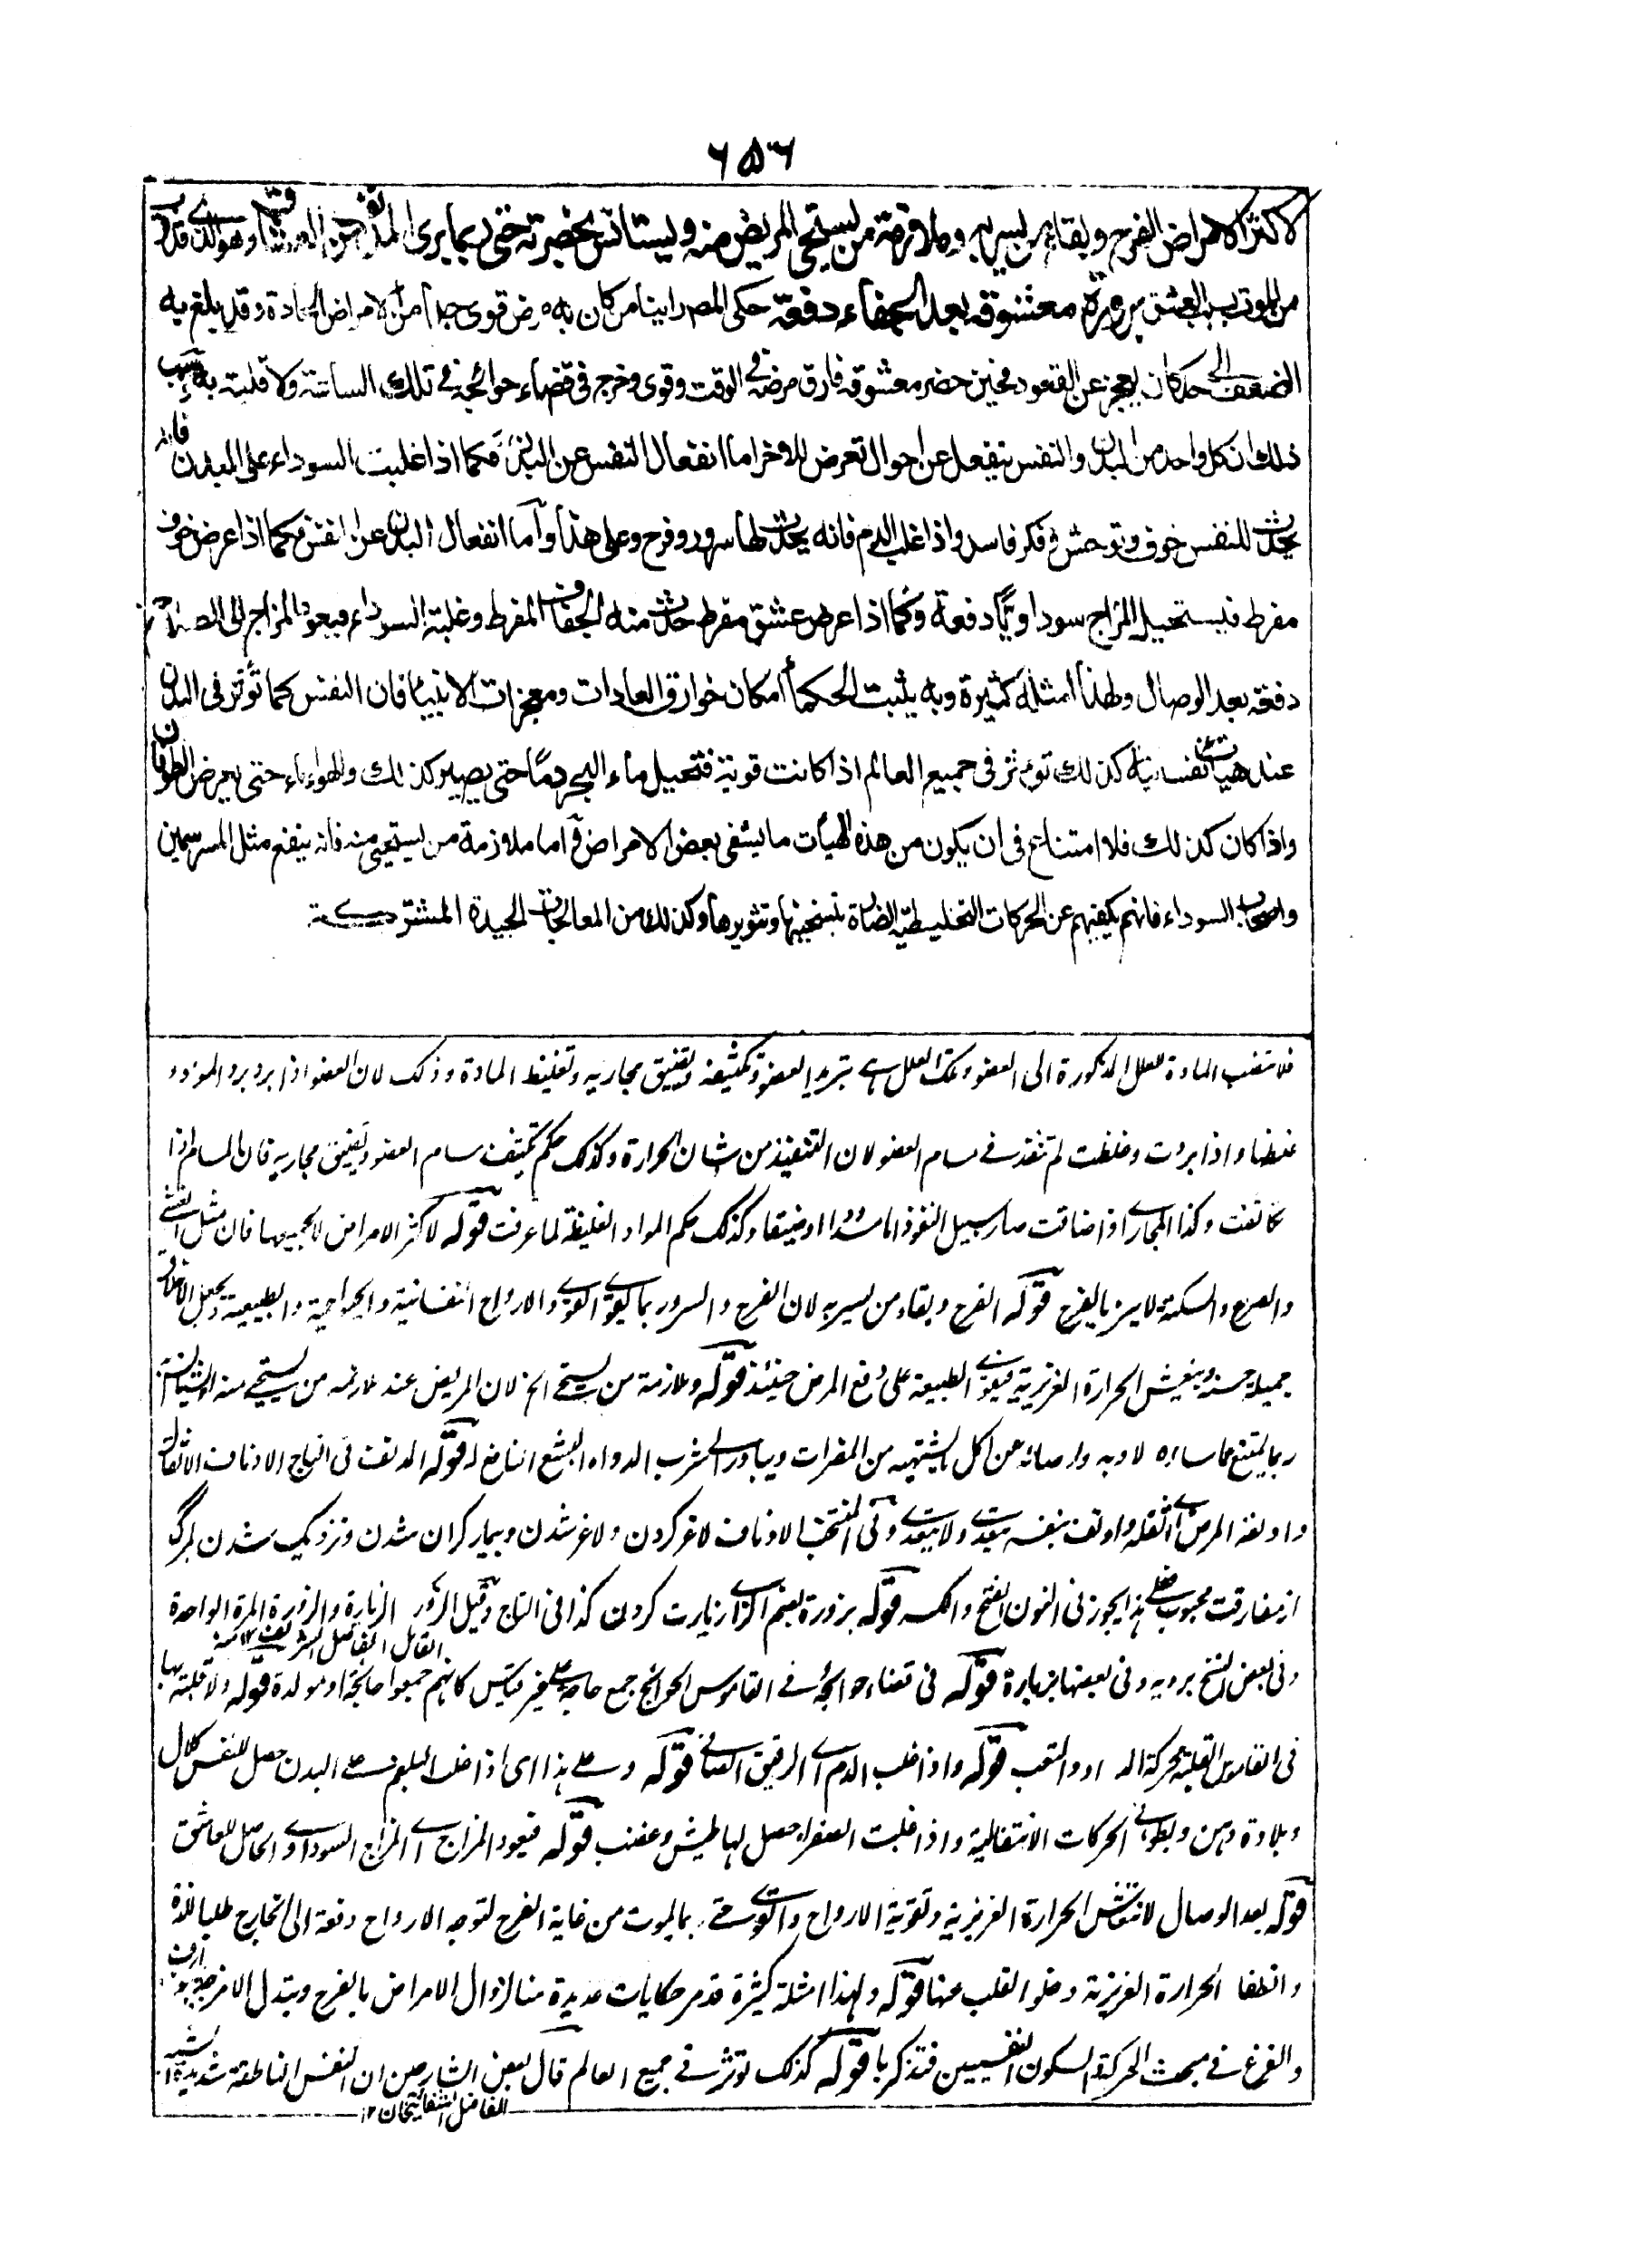 ٦٥٦
لاكثر الامراض الفرح ولقاء من يسر به وملازمة من يستحي المريض منه ويستانس بحضرته حتى ربما يرى المدنف من العشق وهو الذي قرب
من الموت بسبب العشق بزورة معشوقه بعد الجفاء دفعة حكى المص راينا من كان به مرض قوى جدا من الامراض الحادة وقد بلغ به
الضعف الى حد كان يعجز عن القعود فحين حضر معشوقه فارق مرضه في الوقت وقوى وخرج في قضاء حوائجه في تلك الساعة ولا قلبة به وسبب
ذلك ان كل واحد من البدن والنفس ينفعل عن احوال تعرض للاخر اما انفعال النفس عن البدن فكما اذا غلبت السوداء على البدن فانه
يحدث للنفس خوف وتوحش وفكر فاسد واذا غلب الدم فانه يحدث لها سرور وفرح وعلى هذا واما انفعال البدن عن النفس فكما اذا عرض خوف
مفرط فيستحيل المزاج سوداويا دفعة وكما اذا عرض عشق مفرط حدث منه الجفاف المفرط وغلبة السوداء فيعود المزاج الى الصلاح
دفعة بعد الوصال ولهذا امثلة كثيرة وبه يثبت الحكماء امكان خوارق العادات ومعجزات الانبياء فان النفس كما تؤثر في البدن
عند هيات نفسانية كذلك تؤثر في جميع العالم اذا كانت قوية فتحيل ماء البحر دما حتى يصير كذلك والهواء ماء حتى يعرض الطوفان
واذا كان كذلك فلا امتناع في ان يكون من هذه الهيأت ما يشفى بعض الامراض واما ملازمة من يستحيى منه فانه ينفع مثل المسرسمين
واصحاب السوداء فانهم يكفهم عن الحركات التخليطية الضارة بتسخينها وتثويرها وكذلك من المعالجات الجيدة المشتركة
فلا تنصب المادة للعلل المذكورة الى العضو وتلك العلل هي تبريد العضو وتكثيفه وتضييق مجاريه وتغليظ المادة وذلك لان العضو اذا برد برد المواد و
غلظها واذا بردت وغلظت لم تنفذ في مسام العضو لان التنفيذ من شان الحرارة وكذلك حكم تكثيف مسام العضو وتضييق مجاريه فان المسام اذا
تكاثفت وكذا المجاري اذا ضاقت صار سبيل النفوذ اما مسدودا او ضيقا وكذلك حكم المواد الغليظة لما عرفت قوله لاكثر الامراض لا لجميعها فان مثل الغشي
والصرع والسكتة لا يبرء بالفرح قوله الفرح ولقاء من يسر به لان الفرح والسرور مما يقوى القوى والارواح النفسانية والحيوانية والطبيعية ويجعل الاخلاق
جميلة حسنة وينعش الحرارة الغريزية فيقوى الطبيعة على دفع المرض حينئذ قوله وملازمة من يستحي الخ لان المريض عند ملازمة من يستحي منه
ربما يمتنع عما ساءه لادبه ولرضائه عن اكل ما يشتهيه من المضرات ويبادر الى شرب الدواء البشع النافع له قوله المدنف في التاج الادناف الاثقال
وادنفه المرض اي اثقله وادنف بنفسه يتعدى ولا يتعدى وفي المنتخب الادناف لاغر كردن ولاغر شدن وبيمار گران شدن ونزديك شدن بمرگ
از مفارقت محبوب فعلى هذا يجوز في النون الفتح والكسر قوله بزورة بضم الزاء زيارت كردن كذا في التاج وقيل الزور الزيارة والزورة المرة الواحدة
القائل الفاضل الشريف ١٢ منه
وفي بعض النسخ برويه وفي بعضها بزيارة قوله في قضاء حوائجه في القاموس الحوائج جمع حاجة على غير قياس كانهم جمعوا حائجة او مولدة قوله ولا قلبة بها
في القاموس القلبة محركة الداء والتعب قوله واذا غلب الدم اي الرقيق الصافي قوله وعلى هذا اي اذا غلب البلغم على البدن حصل للنفس كلال
وبلادة ذهن وبطوء في الحركات الانتقالية واذا غلبت الصفراء حصل لها طيش وغضب قوله فيعود المزاج اي المزاج السوداوي الحاصل للعاشق
قوله بعد الوصال لانتعاش الحرارة الغريزية وتقوية الارواح والقوى حتى ربما يموت من غاية الفرح لتوجه الارواح دفعة الى الخارج طلبا للذة
وانطفاء الحرارة الغريزية وخلو القلب عنها قوله ولهذا امثلة كثيرة قد مر حكايات عديدة منا لزوال الامراض بالفرح وتبدل الامزجة بالخوف
والفزع في مبحث الحركة والسكون النفسيين فتذكر بها قوله كذلك تؤثر في جميع العالم قال بعض الشارحين ان النفس الناطقة شديدة
الفاضل الشفائيخان ١٢